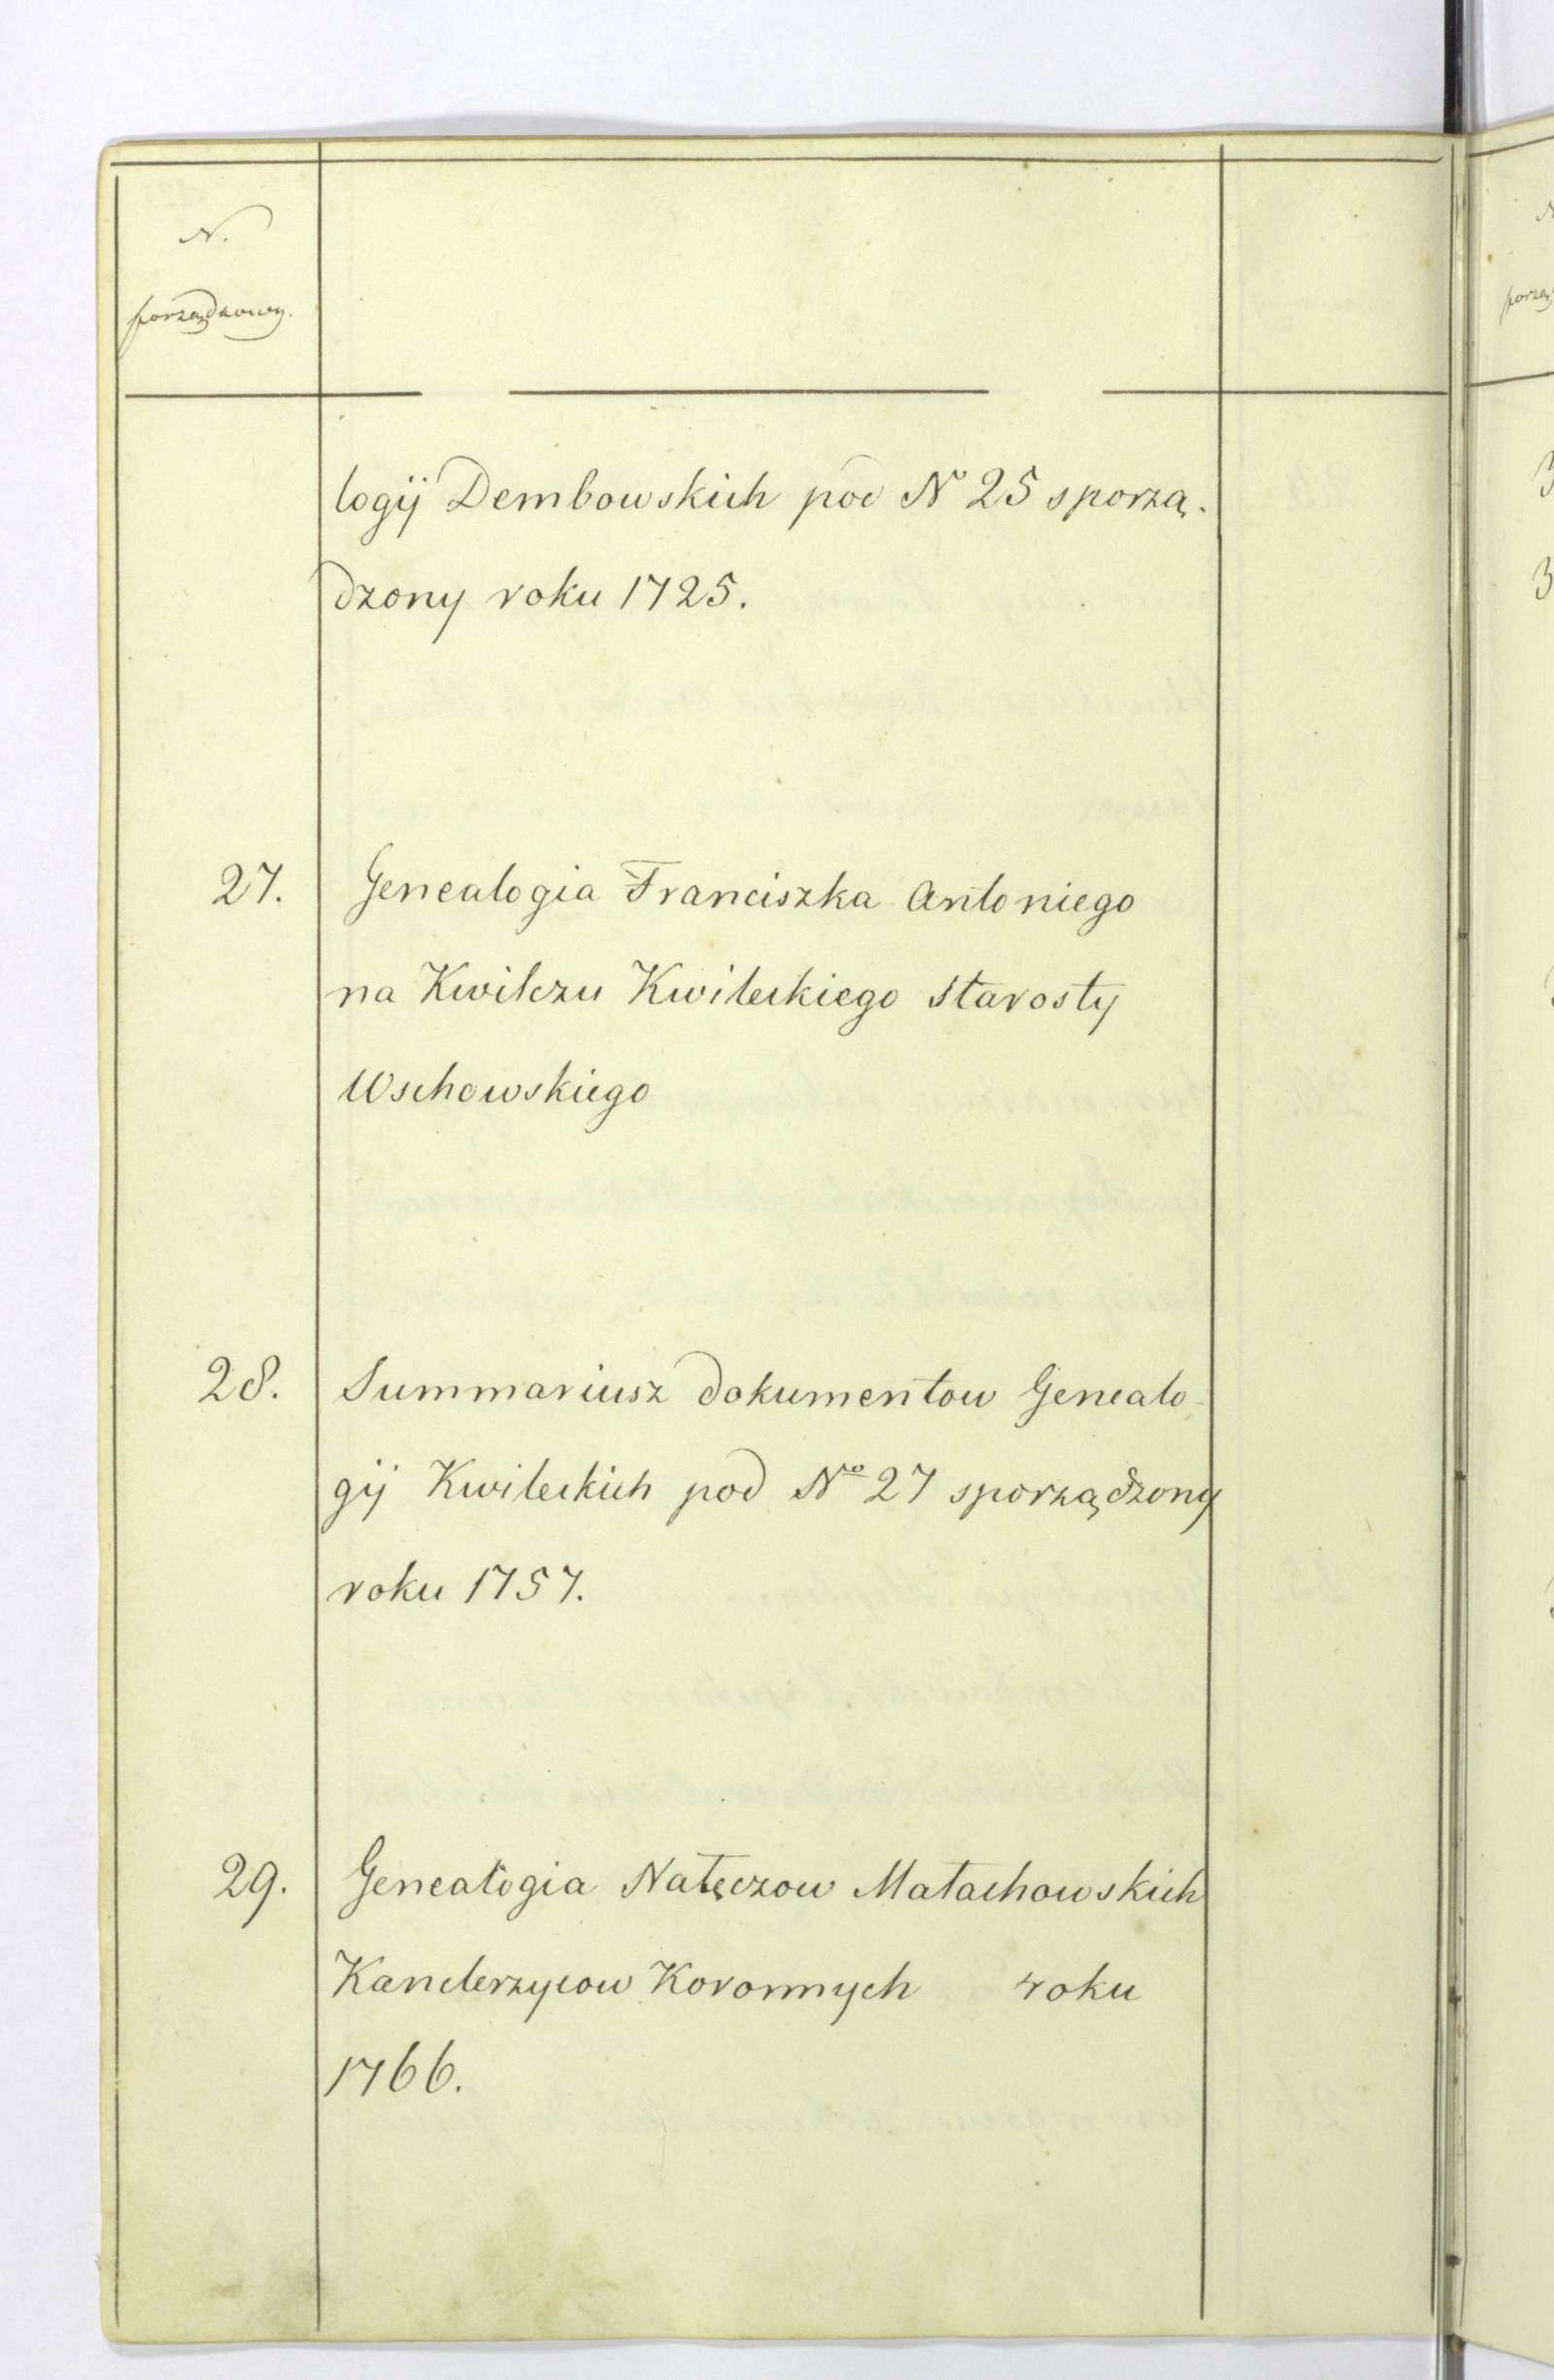 N.
porządkowy.
logij Dembowskich pod No 25 sporzą-
dzony roku 1725.
27. Genealogia Franciszka Antoniego
na Kwilczu Kwileckiego Starosty
Wschowskiego
28. Summariusz dokumentow Genealo-
gij Kwileckich pod No 27 sporządzony
roku 1757.
29. Genealogia Nałęczow Małachowskich
Kanclerzycow Koronnych roku
1766.